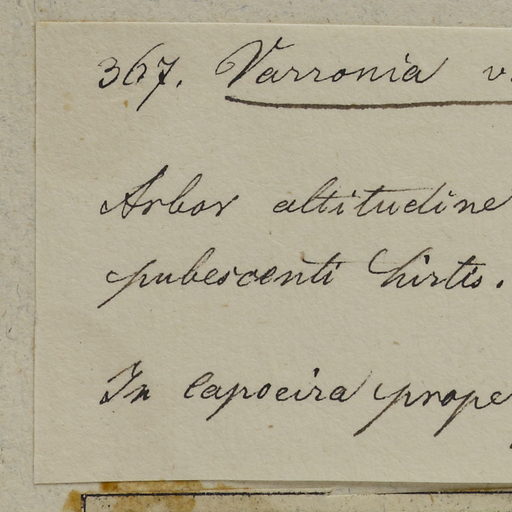 367. Varronia v
Arbor altitudine
pubescenti hirtis.
In capoeira prope